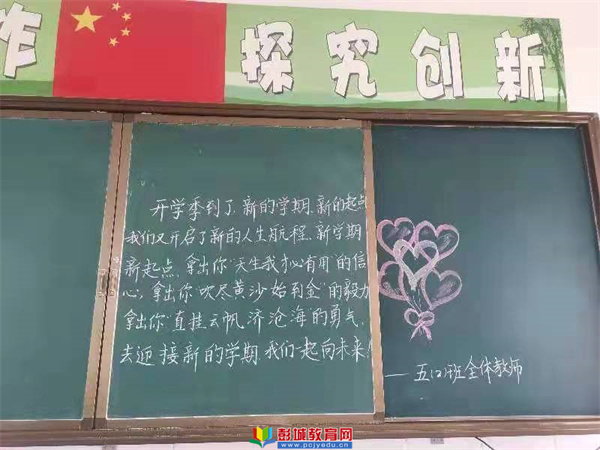 作 探究创新
开学季到了,新的学期,新的起点
我们又开启了新的人生航程,新学期
新起点,拿出你“天生我才必有用”的信
心,拿出你“吹尽黄沙始到金”的毅力
拿出你“直挂云帆济沧海”的勇气,
去迎接新的学期,我们一起向未来!
——五(2)班全体教师
彭城教育网
www.pcjyedu.cn